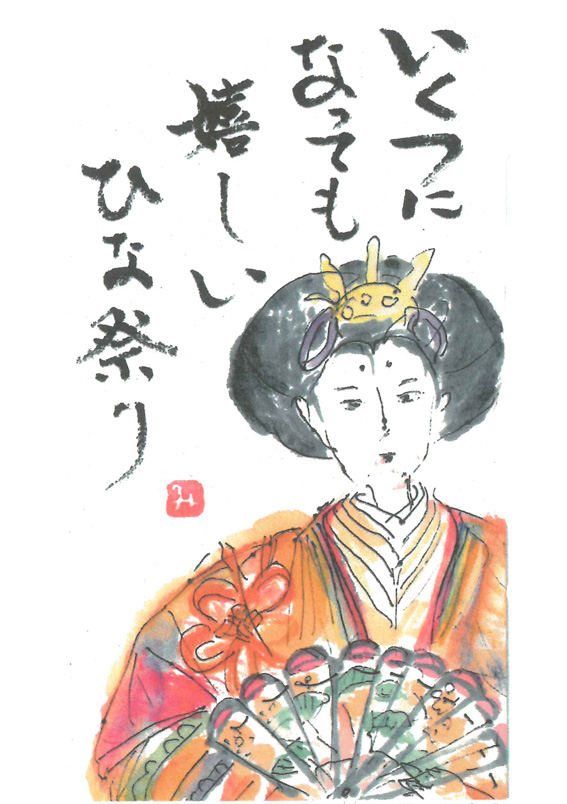 いくつに
なっても
嬉しい
ひな祭り